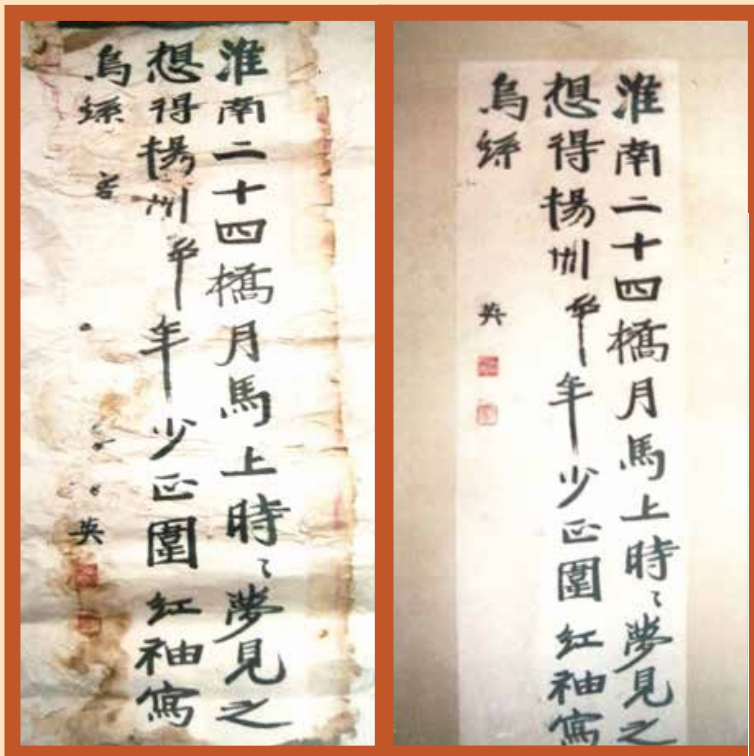 淮南二十四橋月馬上時〻夢見之
想得揚州年少正圍紅袖寫
烏絲
英
淮南二十四橋月馬上時〻夢見之
想得揚州年少正圍紅袖寫
烏絲
英